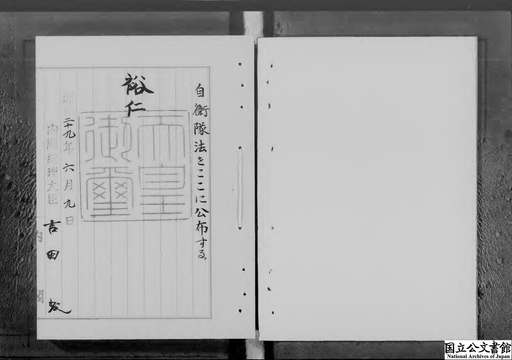 自衛隊法をここに公布する
裕仁
天皇御璽
昭和二十九年六月九日
内閣総理大臣 吉田茂
内閣
国立公文書館
National Archives of Japan